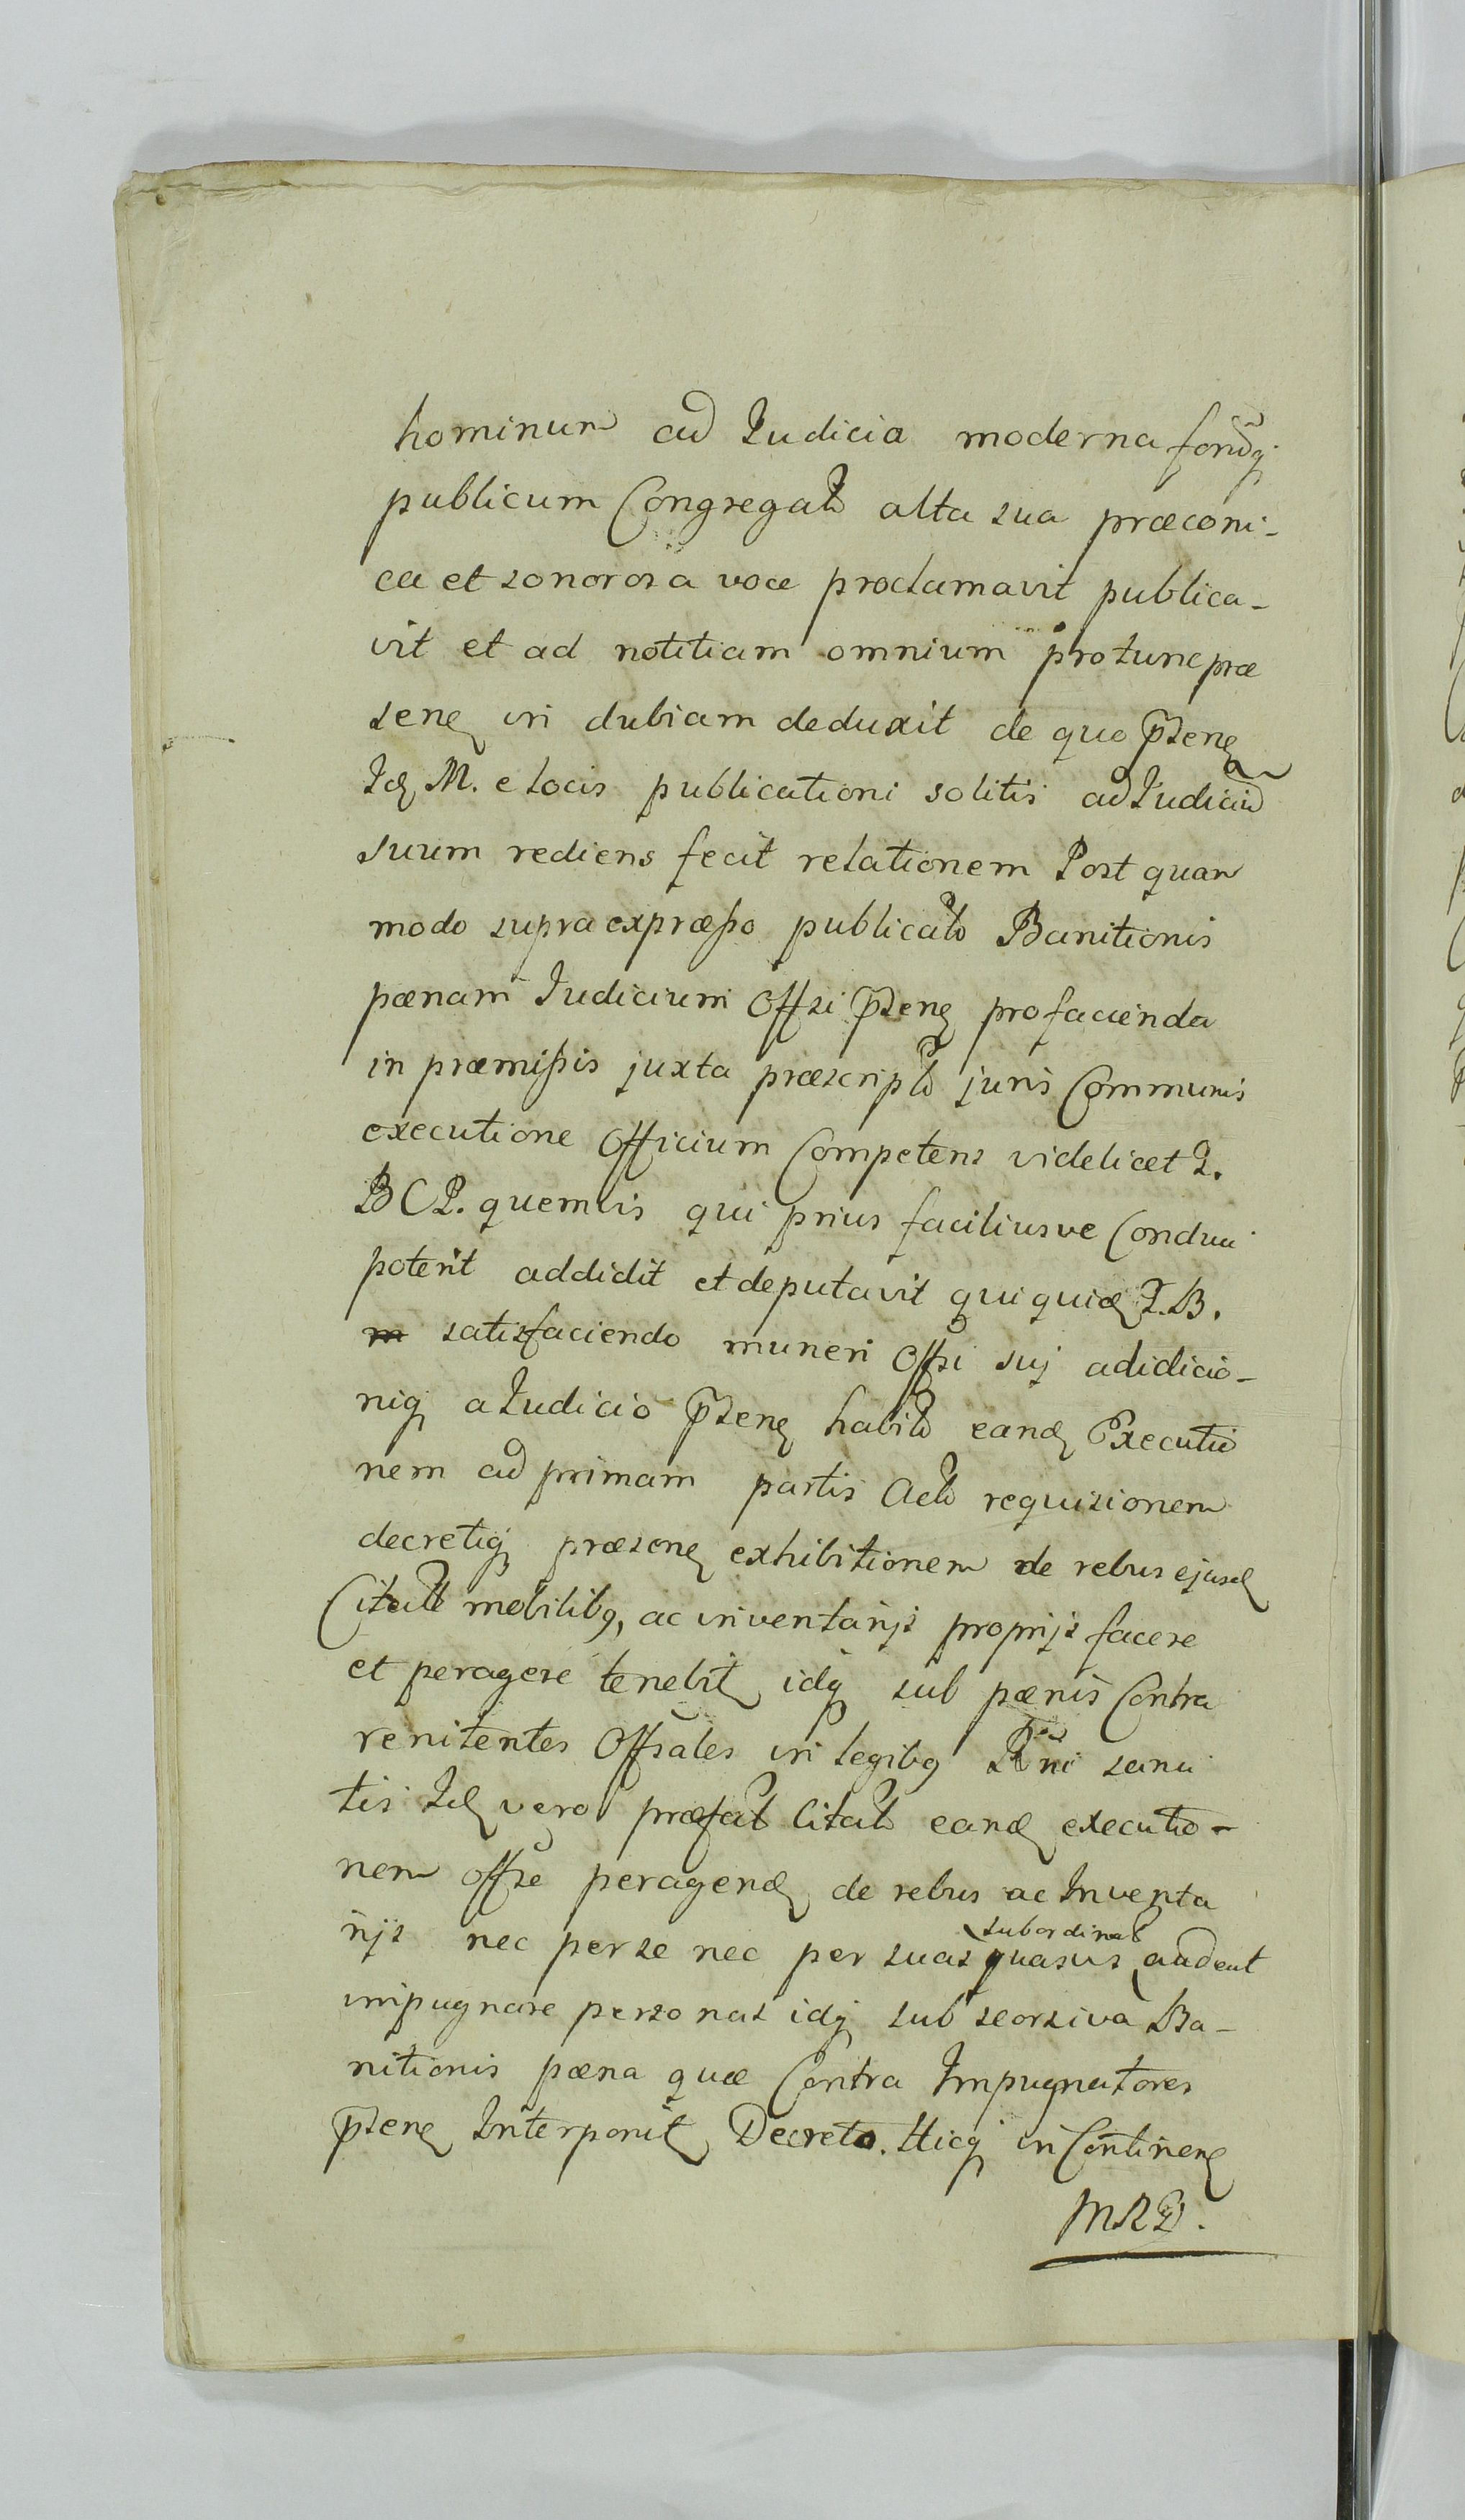 hominum ad Iudicia moderna forūq;
publicum Congregatt alta sua præconi-
ca et sonorosa voce proclamavit publica-
vit et ad notitiam omnium protunc præ
sen in dubiam deduxit de quo p̄sen
Id M. e locis publicationi solitis ad Iudiciū
suum rediens fecit relationem Post quam
modo supra expræsso publicatt Banitionis
pænam Iudicium Offsi p̄sen pro facienda
in præmissis juxta præscriptt juris Communis
executione Officium Competens videlicet I.
B C P. quemvis qui prius faciliusve Conduci
poterit addidit et deputavit qui quid I. B.
satisfaciendo muneri Offsi suj adidicio-
niq; a Iudicio p̄sen habitt eand Executio
nem ad primam partis Actt requisionem
decretiq; præsen exhibitionem de rebus ejusd
Citatt mobilibq, ac inventarijs proprijs facere
et peragere tenebit idq; sub pænis Contra
renitentes Offsales in legibq Rni sanci
tis Id vero præfatt Citatt eand executio-
nem offse peragend de rebus ac Inventa
rijs nec per se nec per suas quasvis subordinatt audeat
impugnare personas idq; sub seorsiva Ba-
nitionis pæna quæ Contra Impugnatores
p̄sen Interponit Decreto. Hicq; in Continen
MRP.